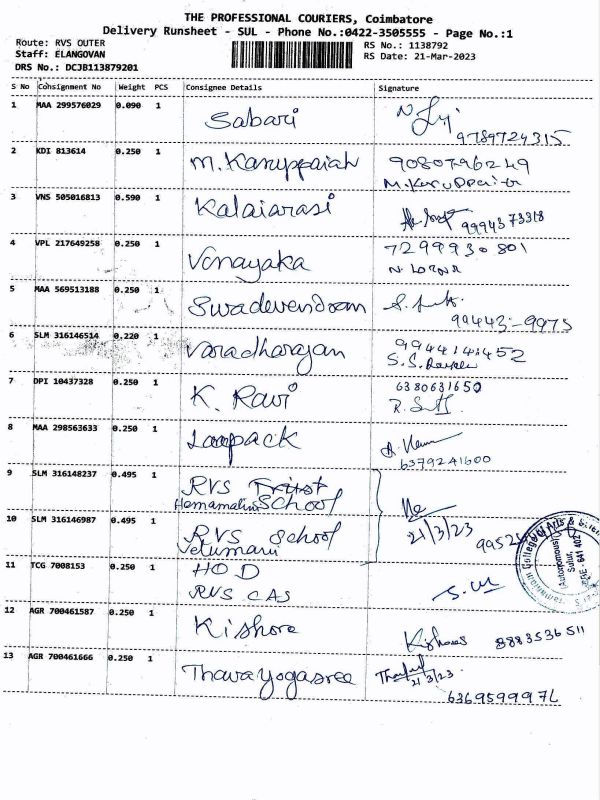 THE PROFESSIONAL COURIERS, Coimbatore
Delivery Runsheet - SUL - Phone No.:0422-3505555 - Page No.:1
Route: RVS OUTER
RS No.: 1138792
Staff: ELANGOVAN
RS Date: 21-Mar-2023
DRS No.: DCJB113879201
S No Consignment No Weight PCS Consignee Details Signature
1 MAA 299576029 0.090 1 Sabari
9789724315
2 KDI 813614 0.250 1 M. Karuppaiah 9080796249
3 VNS 505016813 0.590 1 Kalaiarasi 9994373318
4 VPL 217649258 0.250 1 Vinayaka 7299930801
5 MAA 569513188 0.250 1 Swadevendran
99443-9975
6 SLM 316146514 0.220 1 Varadharajan 9944141452
7 DPI 10437328 0.250 1 K. Ravi 6380631650
8 MAA 298563633 0.250 1
6379241600
9 SLM 316148237 0.495 1 RVS Trust
Hemamalini School
10 SLM 316146987 0.495 1 RVS School 21/3/23
Velumani
11 TCG 7008153 0.250 1 HOD
RVS CAS
12 AGR 700461587 0.250 1 Kishore
Kishore 8883536511
13 AGR 700461666 0.250 1 Tharayogasree 21/3/23